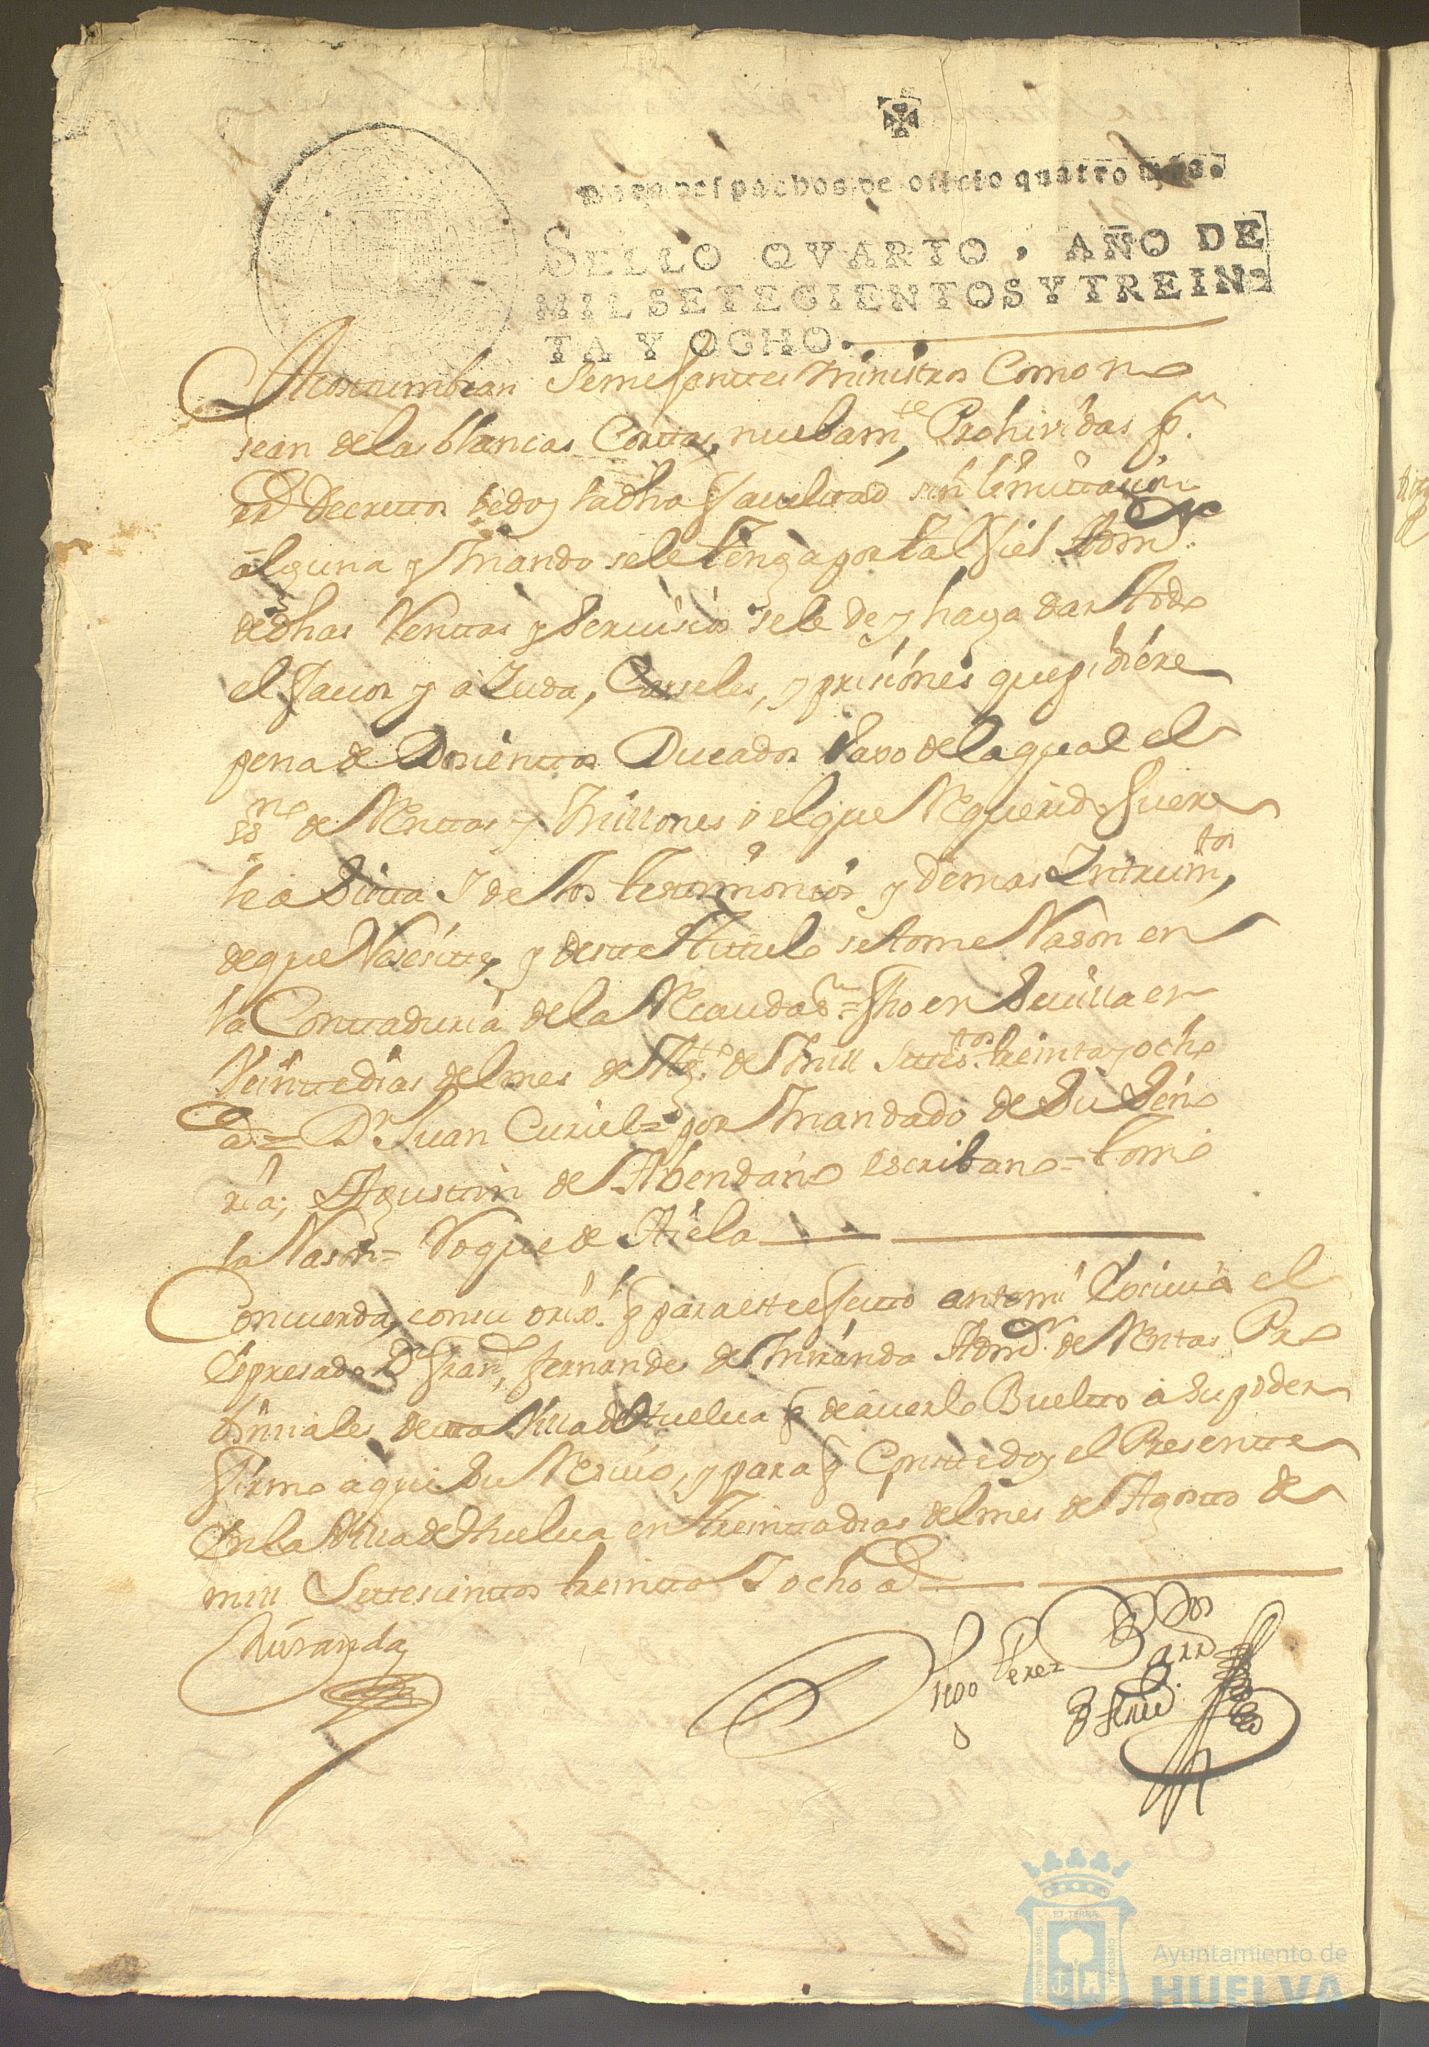 Para despachos de oficio quatro mrs.
SELLO QVARTO, AÑO DE
MIL SETECIENTOS Y TREIN
TA Y OCHO.
Acostumbran Semejantes Ministros Como no
sean de las blancas Cortas, nuebamte, Prohividas pr.
Rs Decretos le doy la dha facultad sin limittacion
alguna y Mando se le tenga por tal fiel Admor.
de dhas Renttas y Servisios se le de y haga dar todo
el favor y aiuda, Carseles, y prisiones que pidiere
pena de Dosienttos Ducados vaxo de la qual el
esno de Renttas y Millones o el que Requerido fuere
le a sista I de los testimonios y demas Intrumtos,
de que Nesesitte, y deste Titulo se tome Rason en
la Contaduria de la Recaudaon = fho en Sevilla en
Veintte dias del mes de Agto. de Mill Settestos. treinta y ocho
as = Dn Juan Curiel = por Mandado de Su Seño
ria; Agustin de Abendaño escribano = tome
la Rason = Roque de Aiela
Concuerda, con su orixl. q para este efectto antemi Exivia el
Expresado Dn Franco, fernandes de Miranda Admor. de Rentas Pro
binsiales de esta Villa de Huelva q de averlo Buelto a Su poder
firmo aqui Su Resivo, y para q Constte doy el Presentte
En la Villa de Huelva en treintta dias del mes de Agosto de
mill Settesienttos treintta I ocho as
Miranda
Diego Perez
Ayuntamiento de
HUELVA